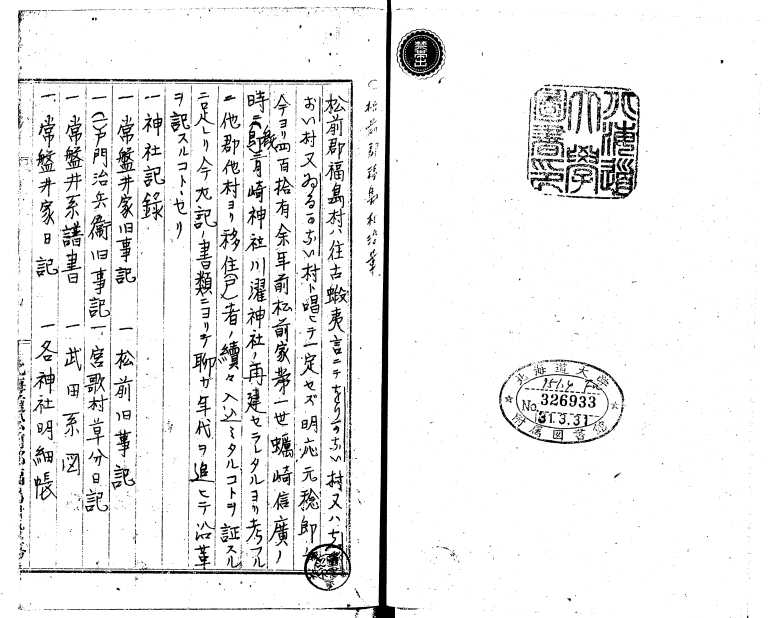 禁帯出
北海道大学図書印
北海道大学
326933
No.
31.3.31
附属図書館
松前郡福島村沿革
松前郡福島村ハ往古蝦夷言ニテをりかない村又ハち
おい村又ゐるかない村ト唱ヒテ一定セズ明応元稔即チ
今ヨリ四百拾有余年前松前家第一世蠣崎信廣ノ
時ニ月崎神社川濯神社ノ再建セラレタルヨリ考フル
ニ他郡他村ヨリ移住戸者ノ續々入込ミタルコトヲ証スル
ニ足レリ今左記ノ書類ニヨリテ聊カ年代ヲ追ヒテ沿革
ヲ記スルコトヽセリ
一神社記録
一常盤井家旧事記 一松前旧事記
一戸門治兵衞旧事記 一宮歌村草分日記
一常盤井系譜書 一武田系図
一常盤井家日記 一各神社明細帳